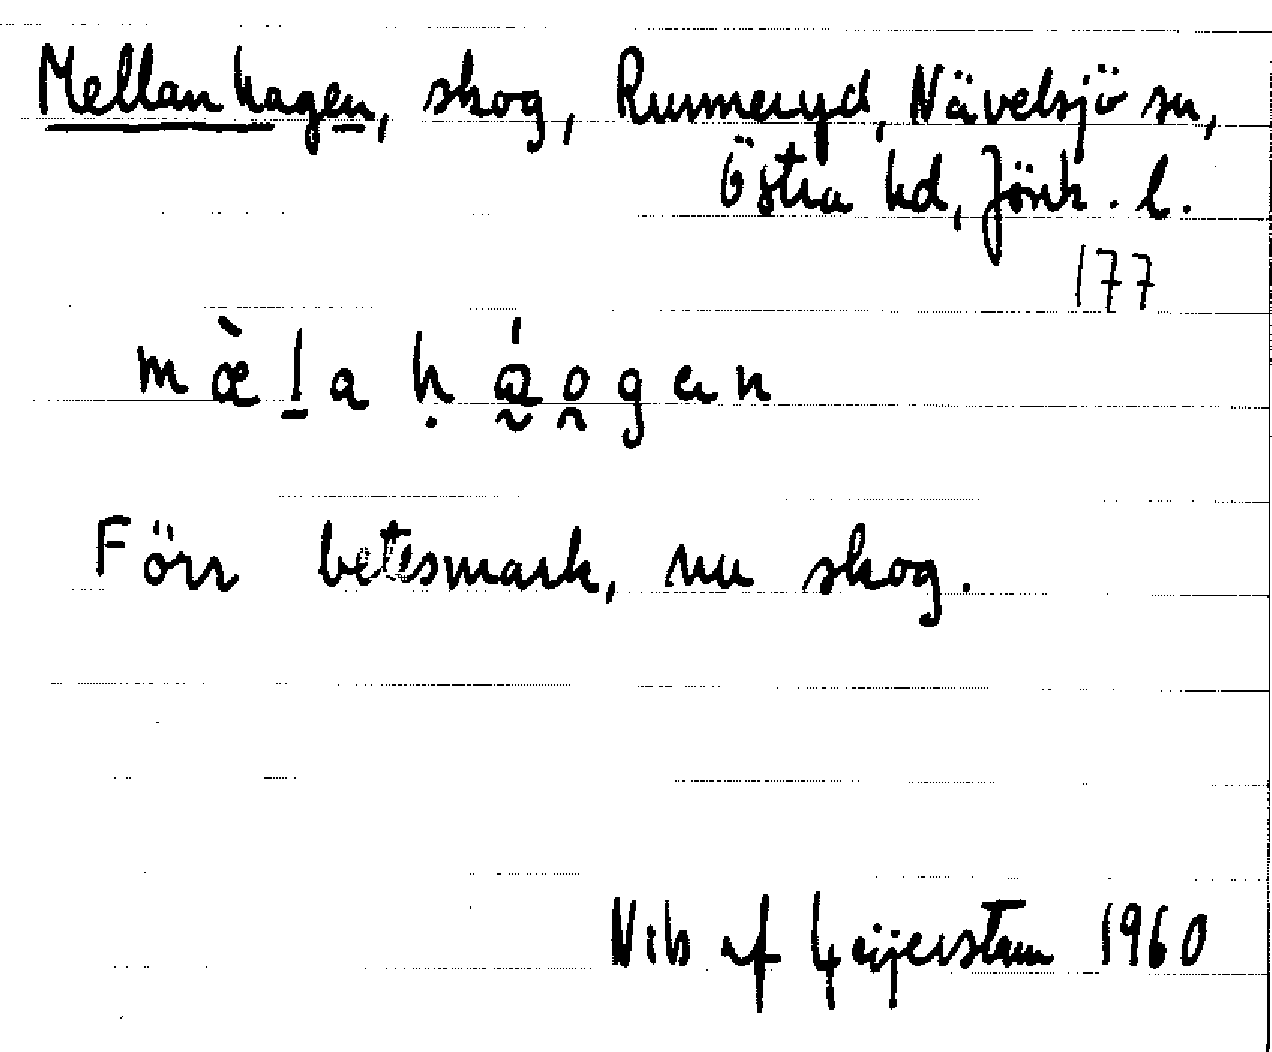 Mellanhagen, skog, Rummeryd, Nävelsjö sn,
Östra hd, Jönk. l.
177
mæ̀l̠a ḥá̰o̯gen
Förr betesmark, nu skog.
Nils af Geijerstam 1960